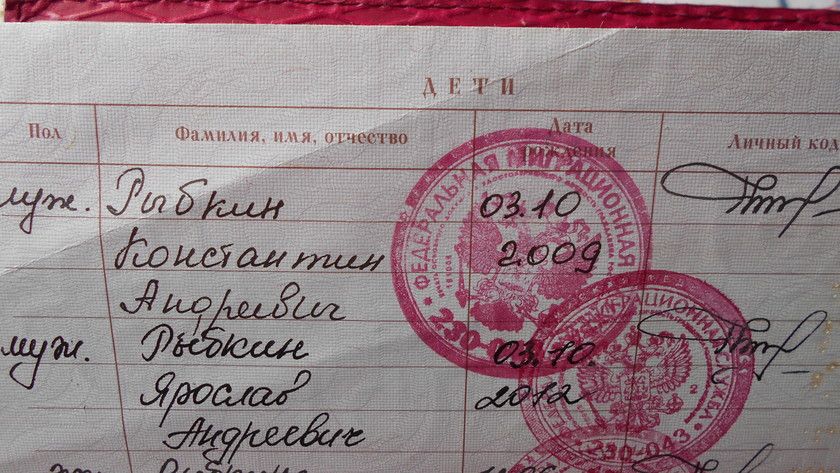 ДЕТИ
Пол Фамилия, имя, отчество Дата рождения Личный код
муж. Рыбкин 03.10
Константин 2009
Андреевич
муж. Рыбкин 03.10.
Ярослав 2012
Андреевич
ФЕДЕРАЛЬНАЯ МИГРАЦИОННАЯ
230-043